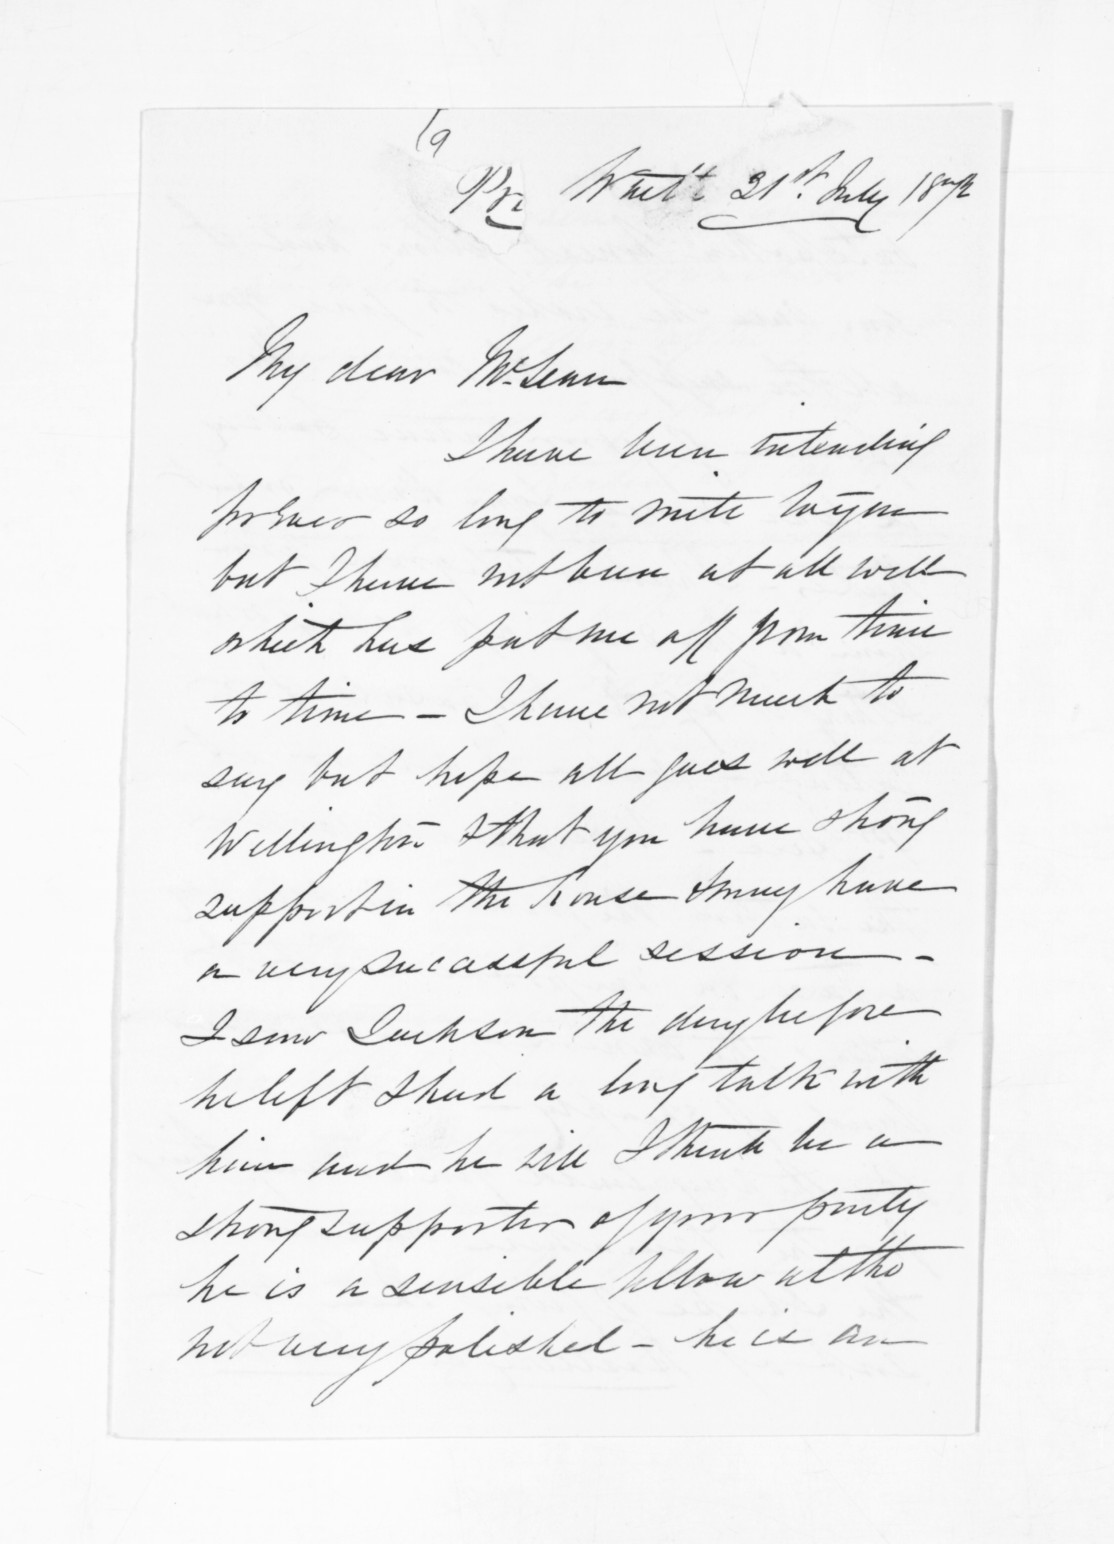 19
Pri Wait'i 21st. July 1872
My dear McLean
I have been intending
for ever so long to write to you
but I have not been at all well
which has put me off from time
to time - I have not much to
say but hope all goes well at
Wellington & that you have strong
support in the house & may have
a very successful session -
I saw Jackson the day before
he left & had a long talk with
him and he will I think be a
strong supporter of your party
he is a sensible fellow altho
not very polished - he is an